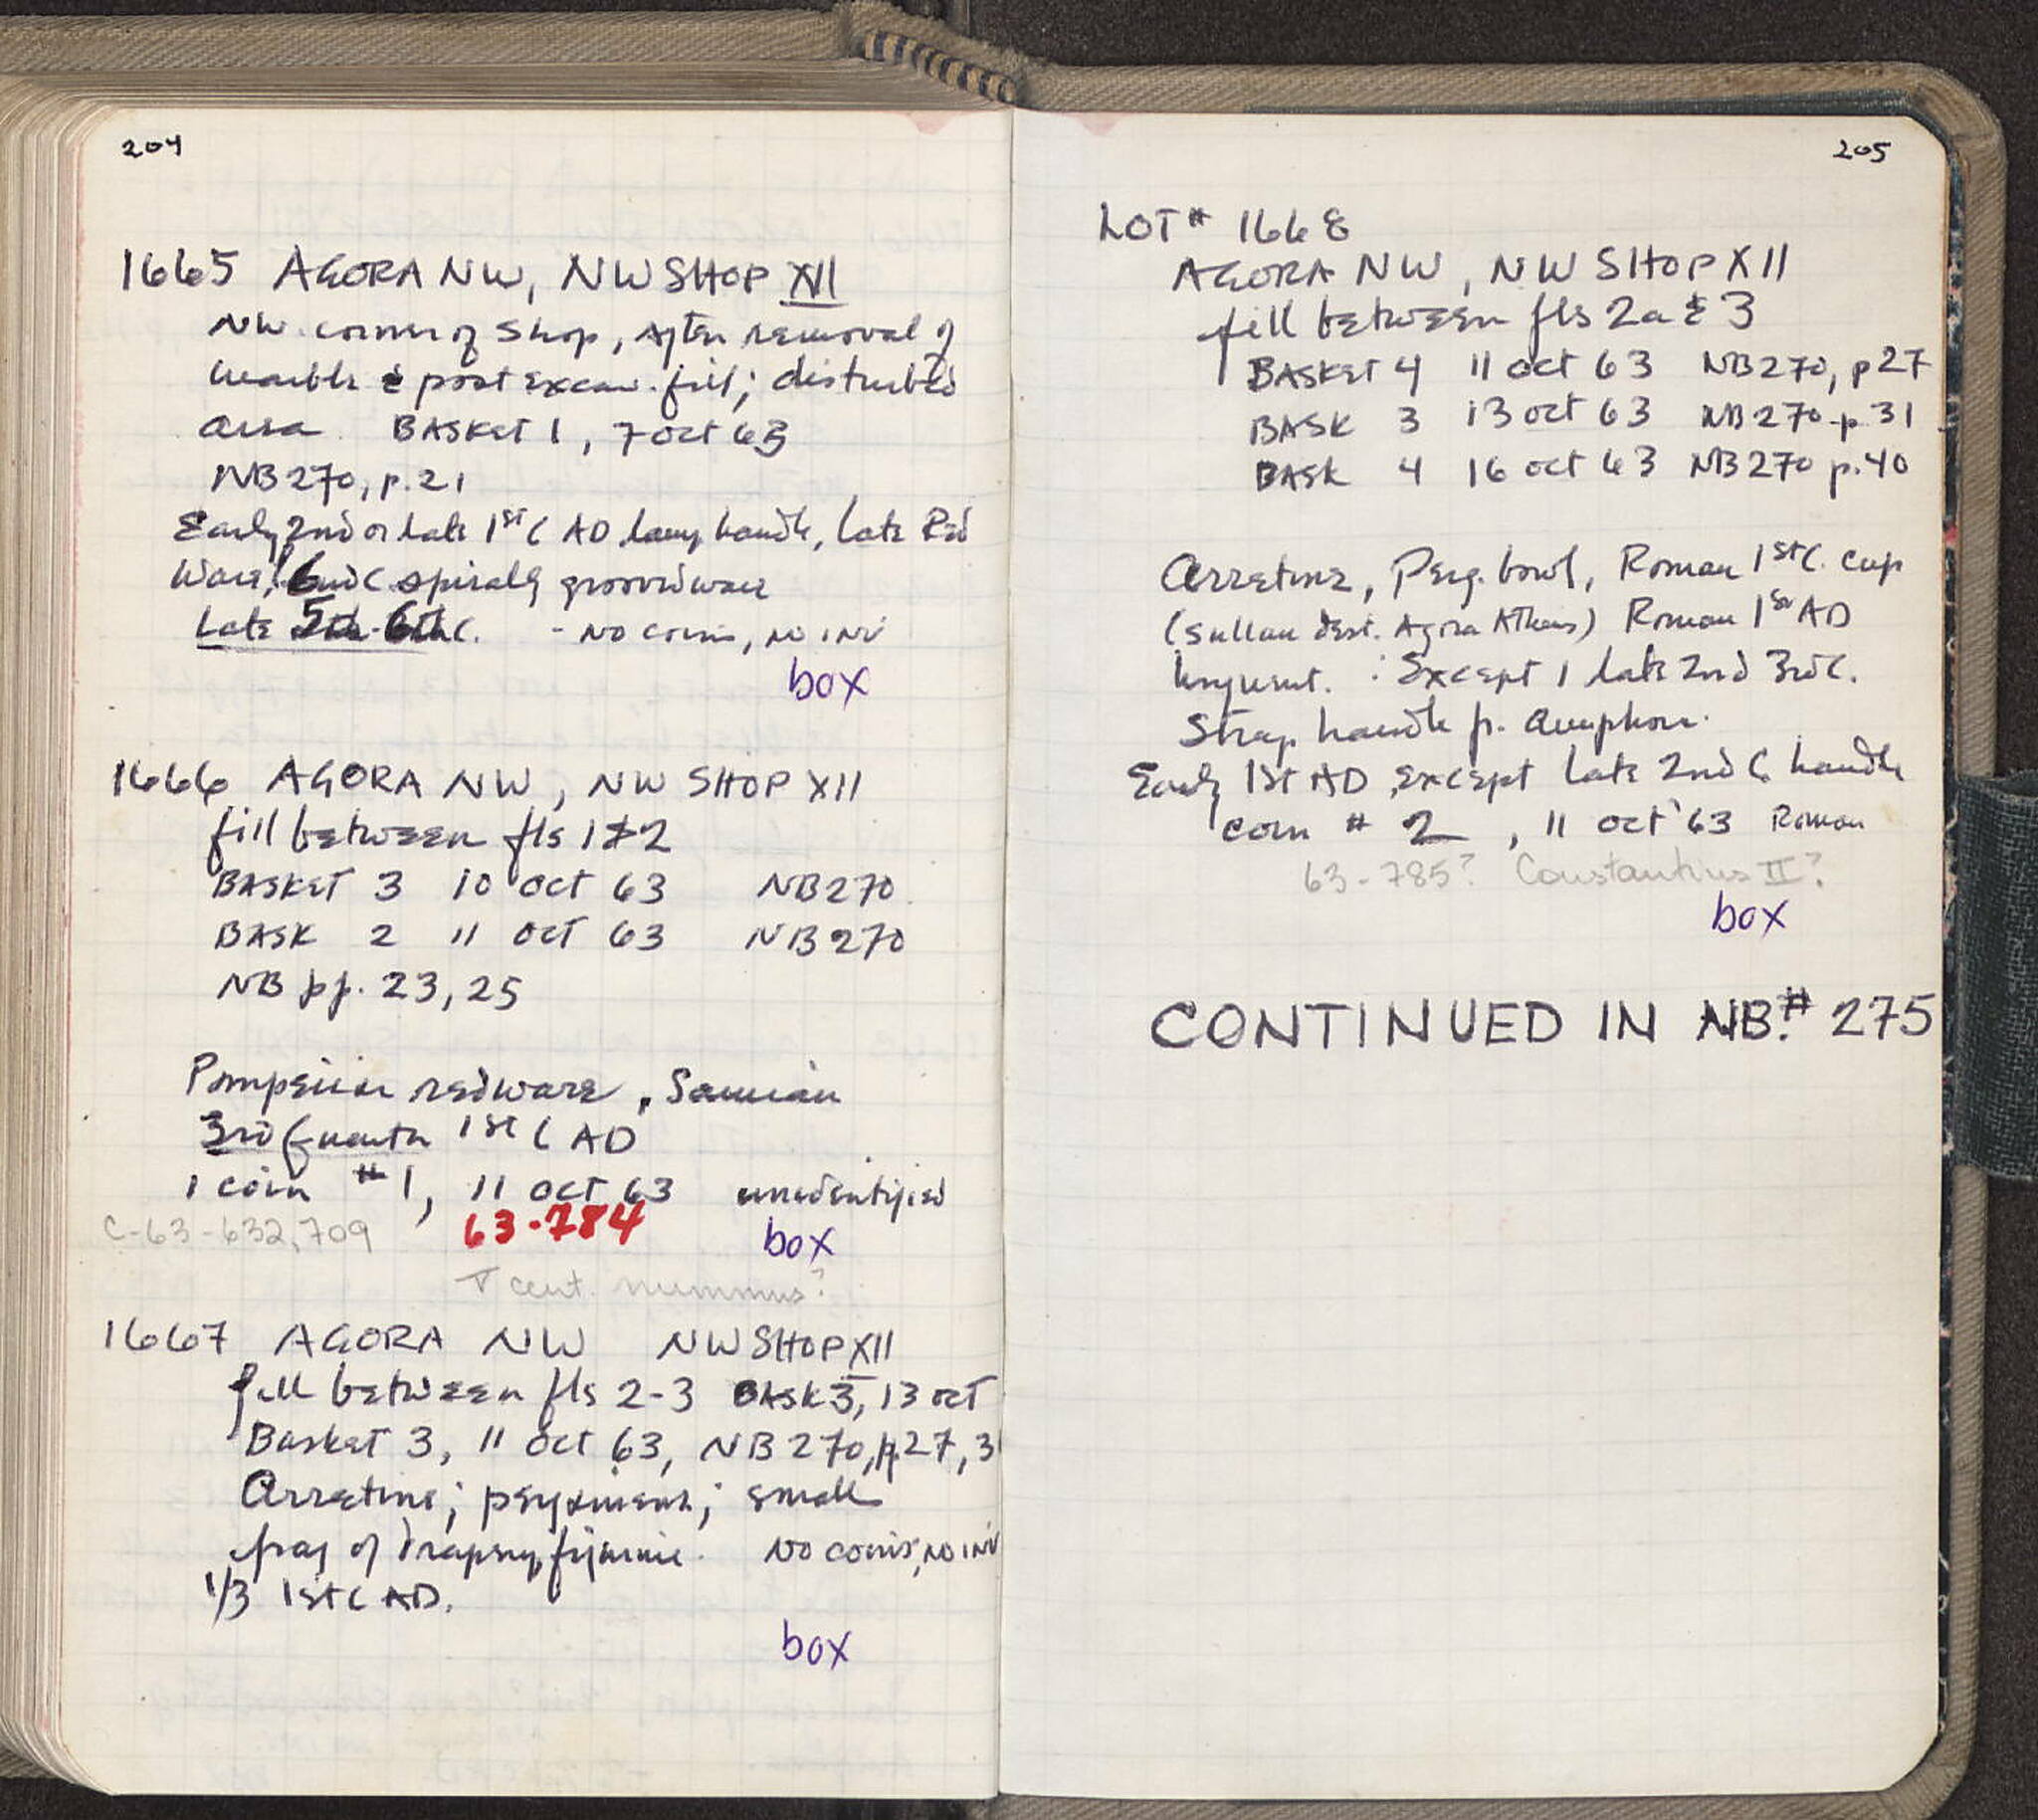 204
1665 AGORA NW, NW SHOP XII
NW. corner of Shop, after removal of
marble & post excav. fill; disturbed
area BASKET 1, 7 Oct 63
NB 270, p. 21
Early 2nd or late 1st C AD lamp handle, late Red
Ware, C spirally grooved ware
Late 5th-6th C. - NO coins, NO INV
box
1666 AGORA NW, NW SHOP XII
fill between fls 1 & 2
BASKET 3 10 Oct 63 NB 270
BASK 2 11 Oct 63 NB 270
NB pp. 23, 25
Pompeiian redware, Samian
3rd Quarter 1st C AD
1 coin #1, 11 Oct 63 unidentified
C-63-632, 709 63-784 box
V cent. nummus?
1667 AGORA NW NW SHOP XII
fill between fls 2-3 BASK 3, 13 Oct
Basket 3, 11 Oct 63, NB 270, p. 27, 31
Arretine; pergamene; small
frag of drapery, figurine. NO coins, NO INV
1/3 1st C AD.
box
205
LOT # 1668
AGORA NW, NW SHOP XII
fill between fls 2a & 3
BASKET 4 11 Oct 63 NB 270, p 27
BASK 3 13 Oct 63 NB 270 - p. 31
BASK 4 16 Oct 63 NB 270 p. 40
Arretine, Perg. bowl, Roman 1st C. cup
(Sullan dest. Agora Athens) Roman 1st AD
Unguent. : Except 1 late 2nd 3rd C.
Strap handle fr. Amphora.
Early 1st AD, except late 2nd C handle
coin # 2, 11 Oct '63 Roman
63-785? Constantius II?
box
CONTINUED IN NB.# 275